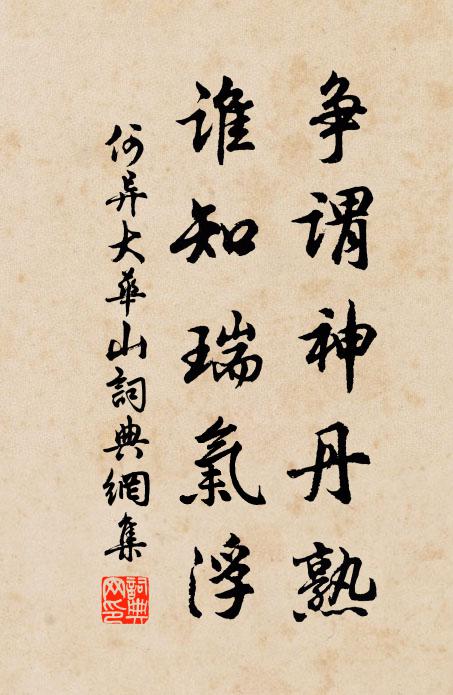 争谓神丹熟
谁知瑞氣浮
何异大華山詞典網集
詞典